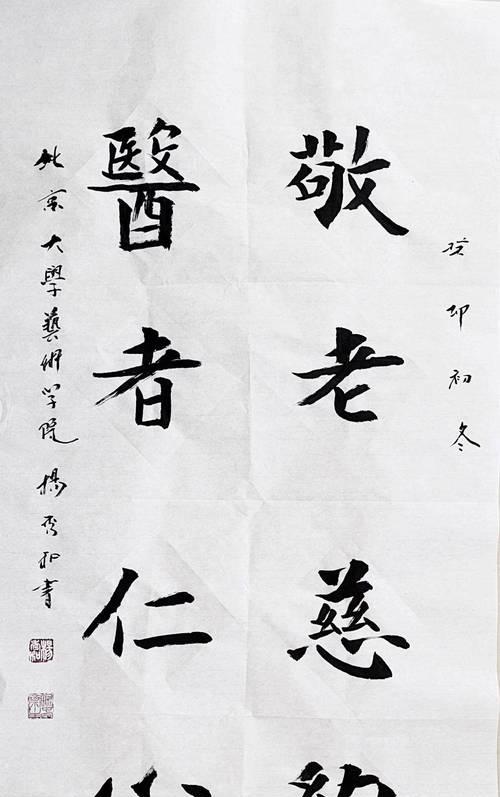 癸卯初冬
敬老慈
醫者仁
北京大學藝術学院 楊秀和書